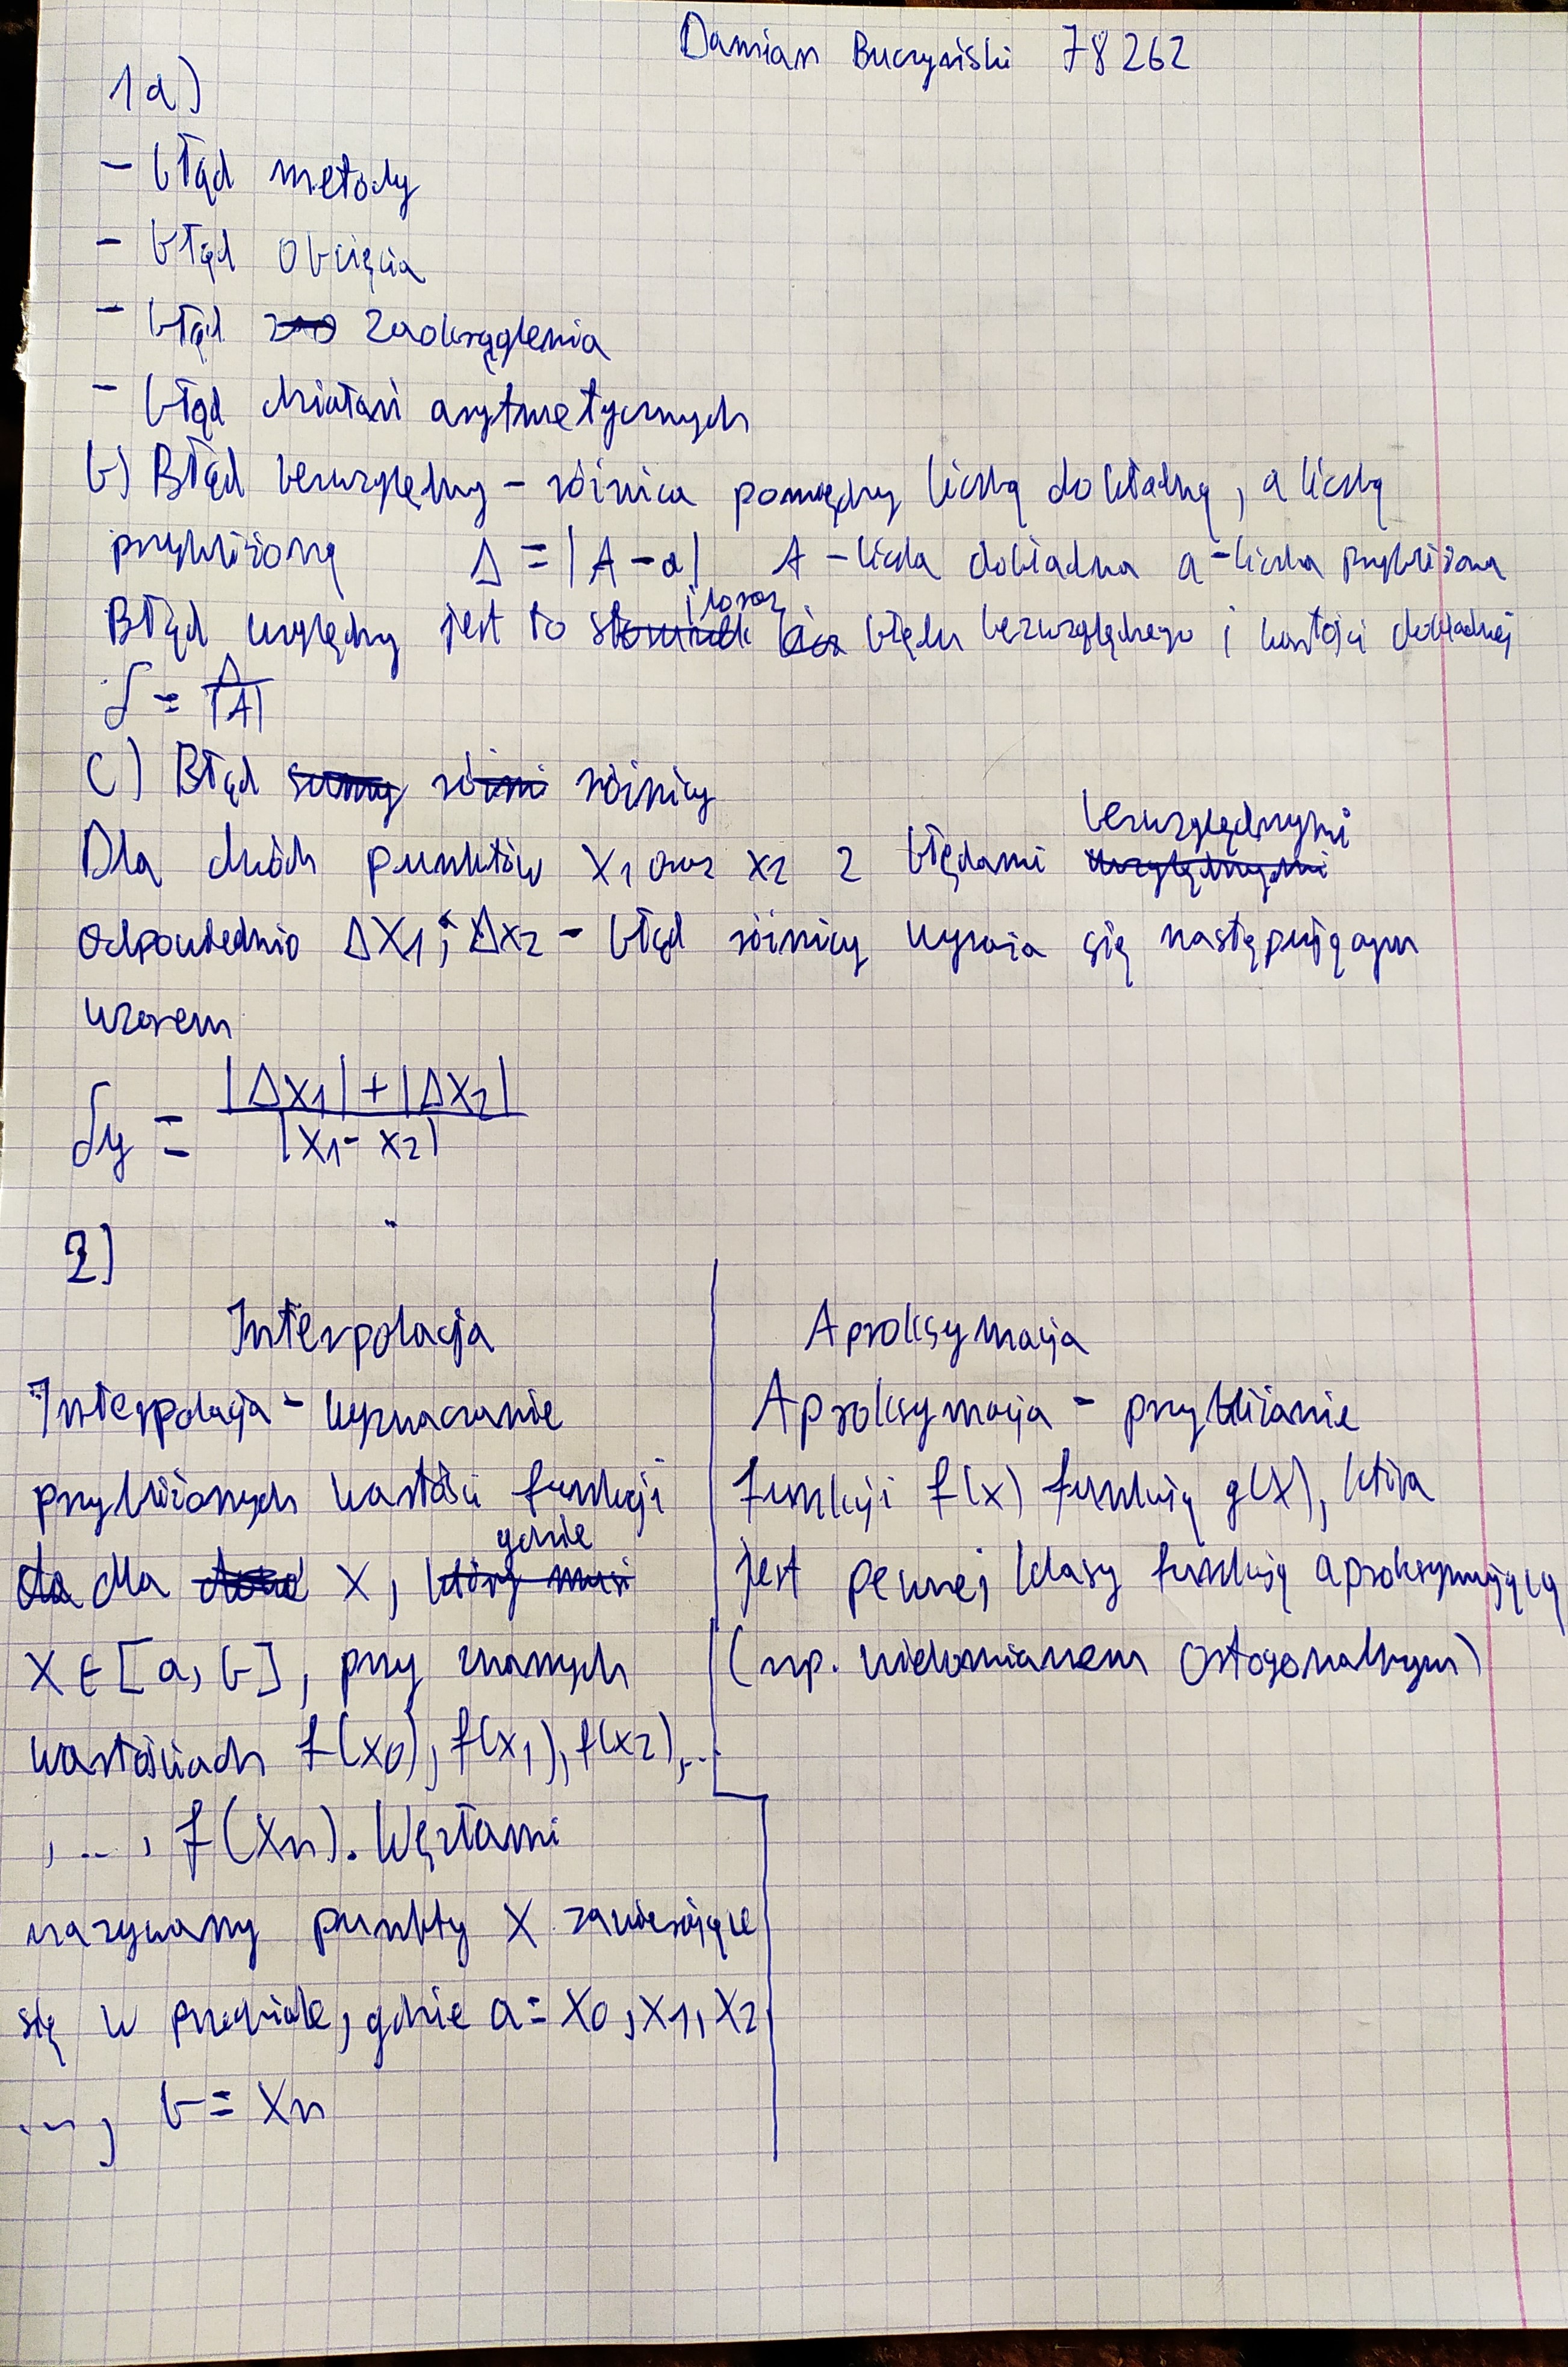 Damian Buczyński 78262
1a)
- błąd metody
- błąd obcięcia
- błąd zaokrąglenia
- błąd działań arytmetycznych
b) Błąd bezwzględny - różnica pomiędzy liczbą dokładną, a liczbą
przybliżoną Δ = |A-a| A - liczba dokładna a - liczba przybliżona
Błąd względny jest to iloraz błędu bezwzględnego i wartości dokładnej
δ = Δ/|A|
C) Błąd różnicy
Dla dwóch punktów x1 oraz x2 z błędami bezwzględnymi
odpowiednio Δx1 i Δx2 - błąd różnicy wyraża się następującym
wzorem
δy = |Δx1| + |Δx2| / |x1 - x2|
2)
Interpolacja
Interpolacja - wyznaczanie
przybliżonych wartości funkcji
dla x, gdzie
x ∈ [a, b], przy znanych
wartościach f(x0), f(x1), f(x2),...
, ... , f(xn). Węzłami
nazywamy punkty x zawierające
się w przedziale, gdzie a = x0, x1, x2,
..., b = xn
Aproksymacja
Aproksymacja - przybliżanie
funkcji f(x) funkcją g(x), która
jest pewnej klasy funkcją aproksymującą
(np. wielomianem ortogonalnym)